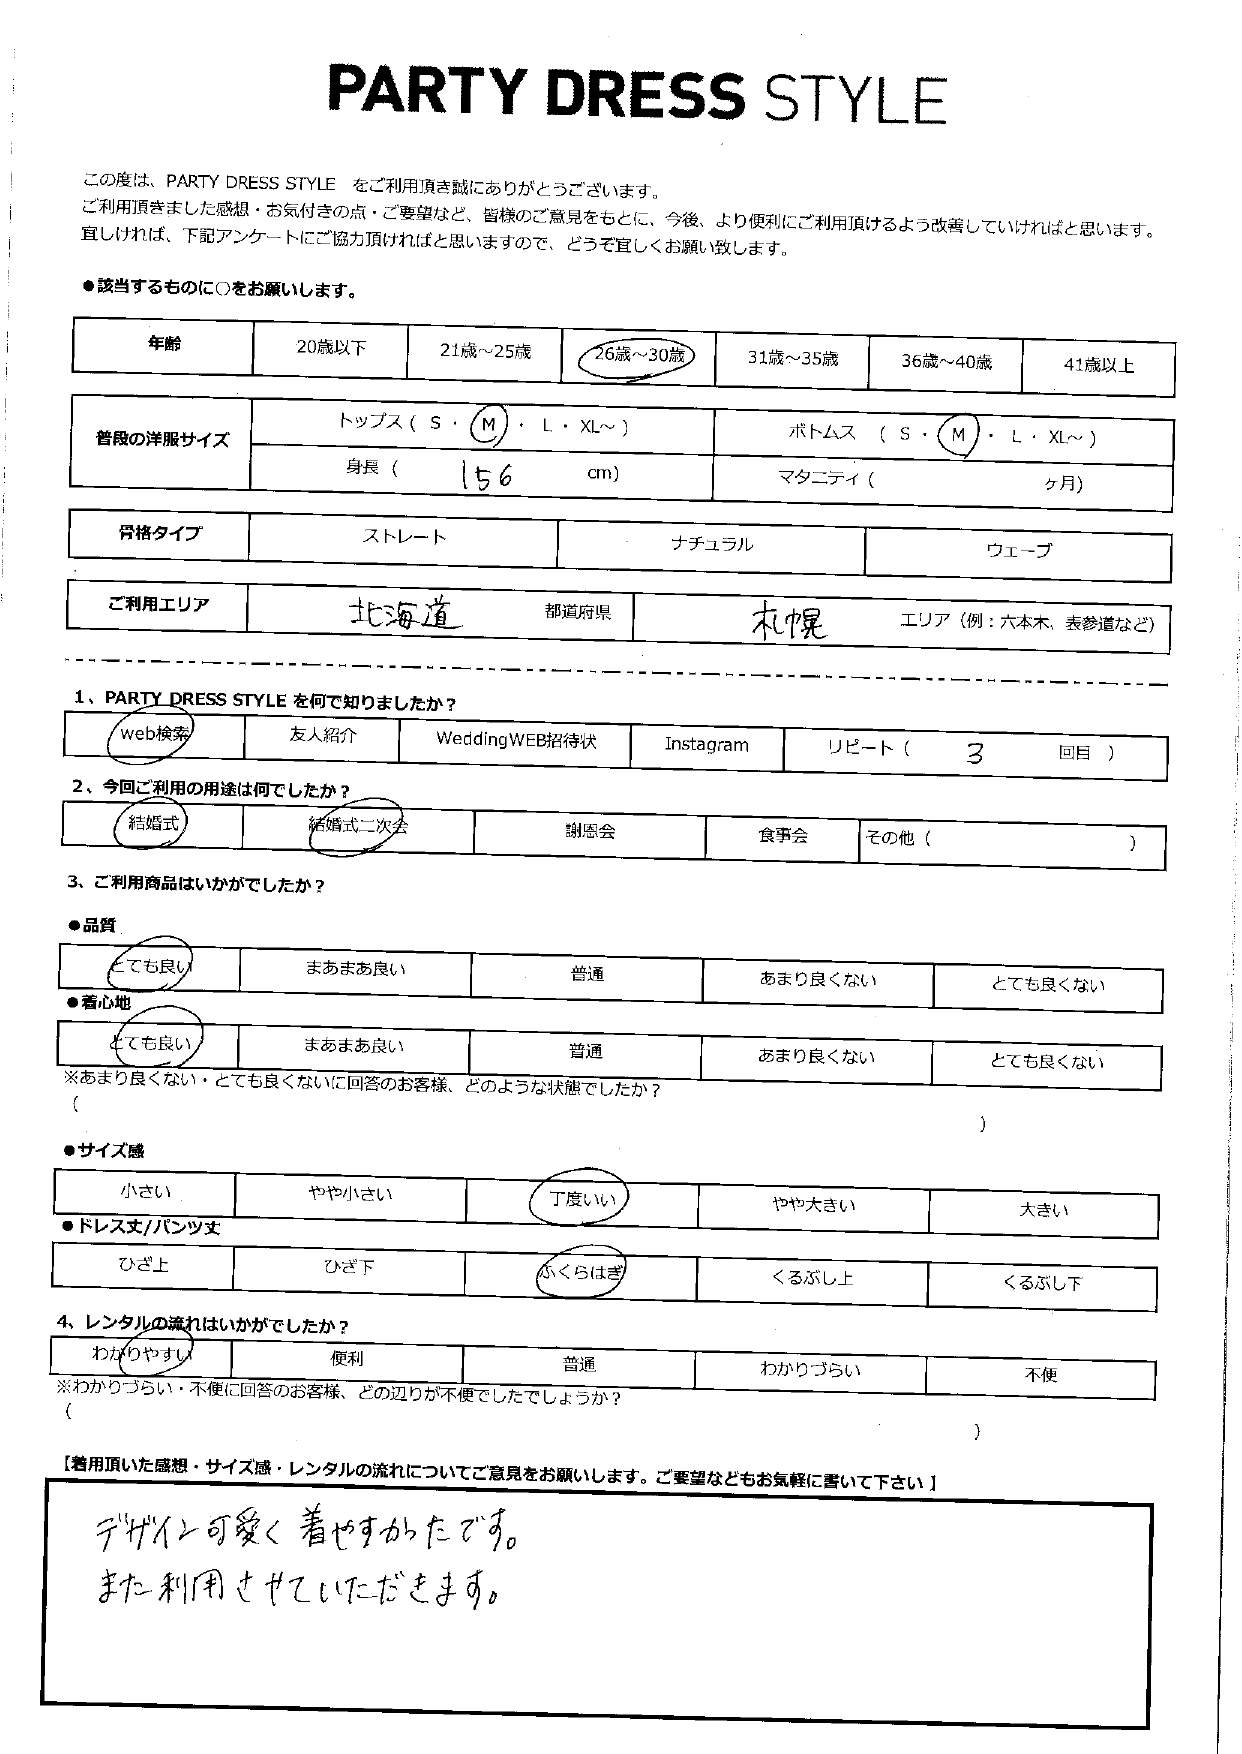 PARTY DRESS STYLE
この度は、PARTY DRESS STYLE をご利用頂き誠にありがとうございます。
ご利用頂きました感想・お気付きの点・ご要望など、皆様のご意見をもとに、今後、より便利にご利用頂けるよう改善していければと思います。
宜しければ、下記アンケートにご協力頂ければと思いますので、どうぞ宜しくお願い致します。
●該当するものに○をお願いします。
年齢 20歳以下 21歳～25歳 26歳～30歳 31歳～35歳 36歳～40歳 41歳以上
普段の洋服サイズ トップス ( S ・ M ・ L ・ XL～ ) ボトムス ( S ・ M ・ L ・ XL～ )
身長 ( 156 cm) マタニティ ( ヶ月)
骨格タイプ ストレート ナチュラル ウェーブ
ご利用エリア 北海道 都道府県 札幌 エリア（例：六本木、表参道など）
1、PARTY DRESS STYLE を何で知りましたか？
web検索 友人紹介 WeddingWEB招待状 Instagram リピート ( 3 回目 )
2、今回ご利用の用途は何でしたか？
結婚式 結婚式二次会 謝恩会 食事会 その他 ( )
3、ご利用商品はいかがでしたか？
●品質
とても良い まあまあ良い 普通 あまり良くない とても良くない
●着心地
とても良い まあまあ良い 普通 あまり良くない とても良くない
※あまり良くない・とても良くないに回答のお客様、どのような状態でしたか？
( )
●サイズ感
小さい やや小さい 丁度いい やや大きい 大きい
●ドレス丈/パンツ丈
ひざ上 ひざ下 ふくらはぎ くるぶし上 くるぶし下
4、レンタルの流れはいかがでしたか？
わかりやすい 便利 普通 わかりづらい 不便
※わかりづらい・不便に回答のお客様、どの辺りが不便でしたでしょうか？
( )
【着用頂いた感想・サイズ感・レンタルの流れについてご意見をお願いします。ご要望などもお気軽に書いて下さい 】
デザイン可愛く着やすかったです。
また利用させていただきます。